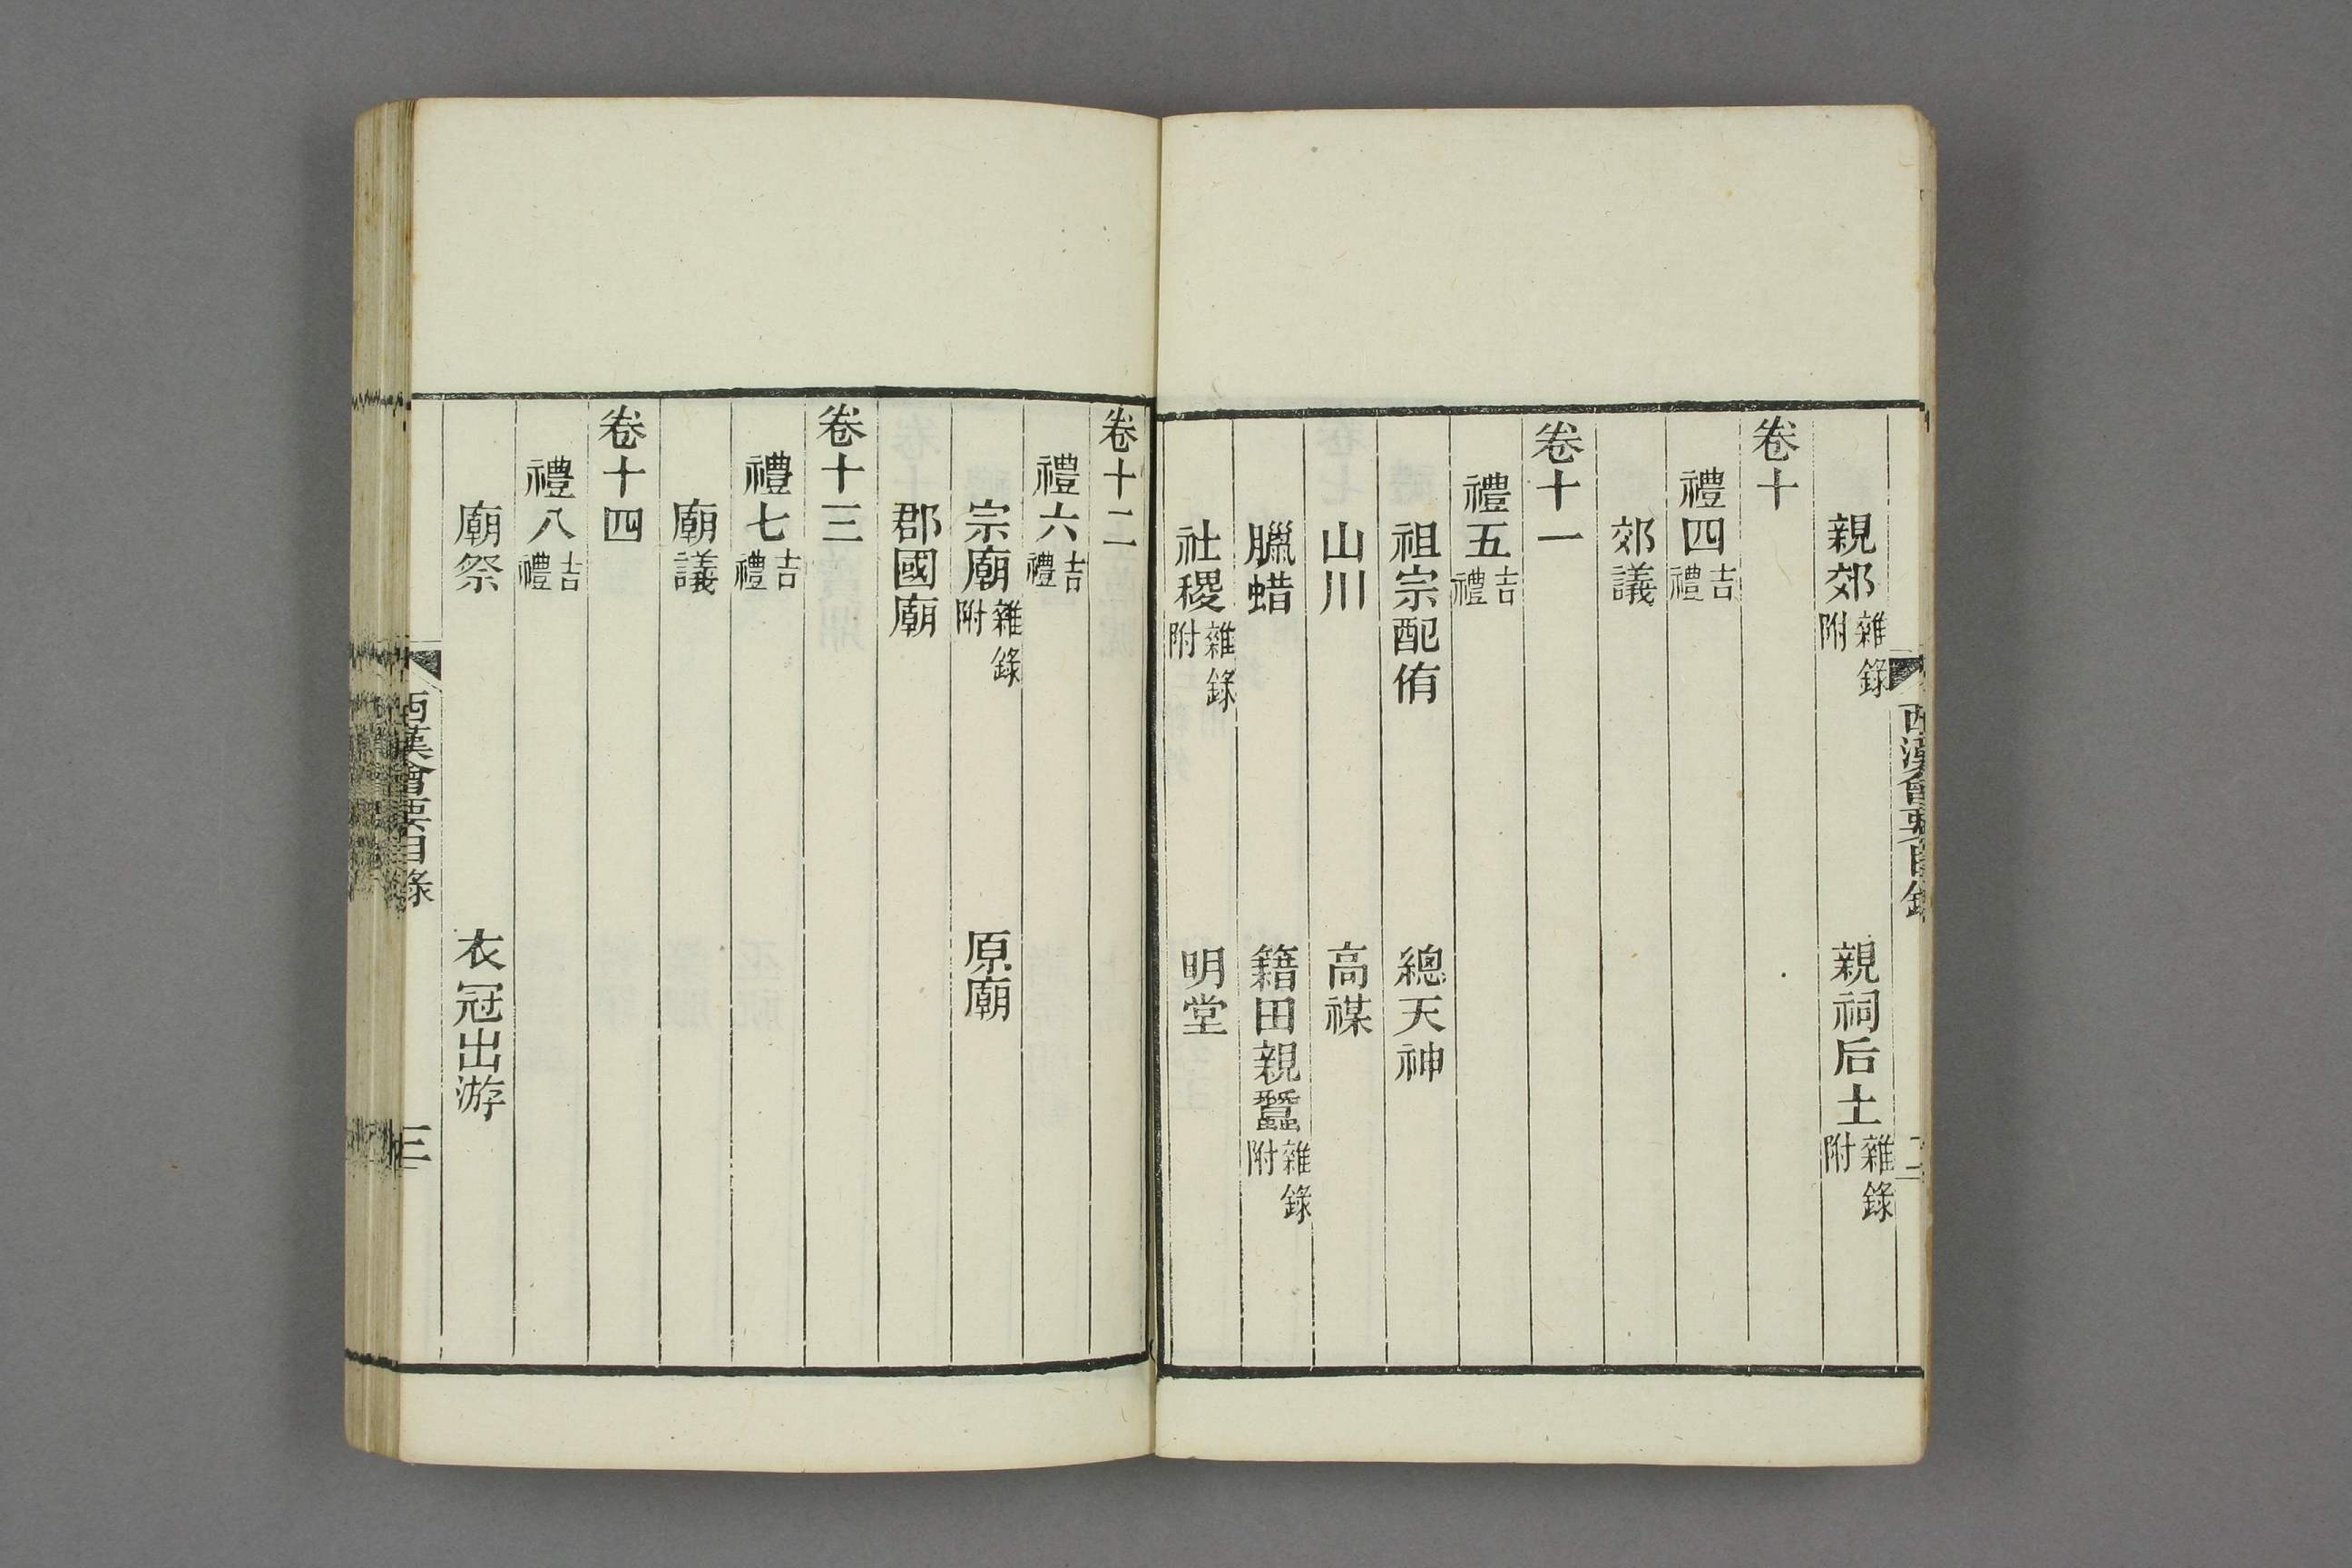 西漢會要目錄 二
親郊雜錄附 親祠后土雜錄附
卷十
禮四吉禮
郊議
卷十一
禮五吉禮
祖宗配侑 總天神
山川 高禖
臘蜡 籍田親蠶雜錄附
社稷雜錄附 明堂
卷十二
禮六吉禮
宗廟雜錄附 原廟
郡國廟
卷十三
禮七吉禮
廟議
卷十四
禮八吉禮
廟祭 衣冠出游
西漢會要目錄 三